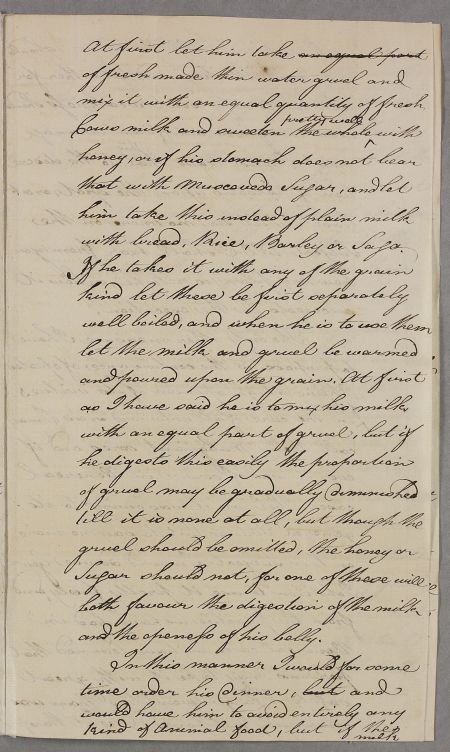 At first let him take an equal part
of fresh made thin water gruel and
mix it with an equal quantity of fresh
Cows milk and sweeten the whole pretty well with
honey, or if his stomach does not bear
that with Muscovado Sugar, and let
him take this instead of plain milk
with bread, Rice, Barley or Sago.
If he takes it with any of the grain
kind let these be first separately
well boiled, and when he is to use them
let the milk and gruel be warmed
and poured upon the grain. At first
as I have said he is to mix his milk
with an equal part of gruel, but if
he digests this easily the proportion
of gruel may be gradually diminished
till it is none at all, but though the
gruel should be omitted, the honey or
Sugar should not, for one of these will
both favour the digestion of the milk
and the openess of his belly.
In this manner I would for some
time order his dinner, but and
would have him to avoid entirely any
kind of Animal food, but if the
milk